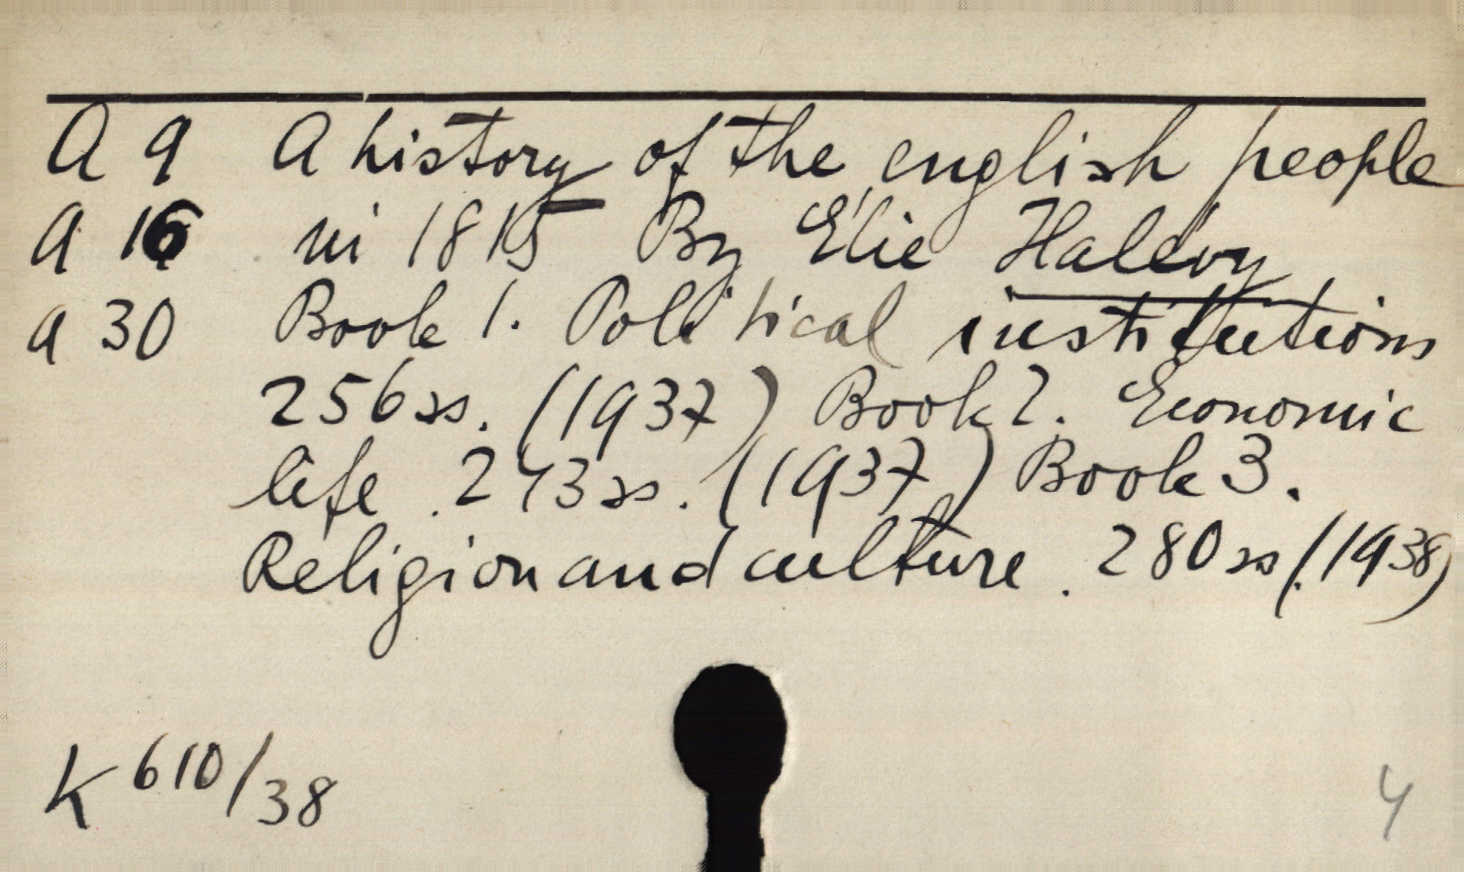 A 9 A history of the english people
A 16 in 1815 By Élie Halévy
A 30 Book 1. Political institutions
256 ss. (1937) Book 2. Economic
life. 243 ss. (1937) Book 3.
Religion and culture. 280 ss. (1938)
K 610/38
4